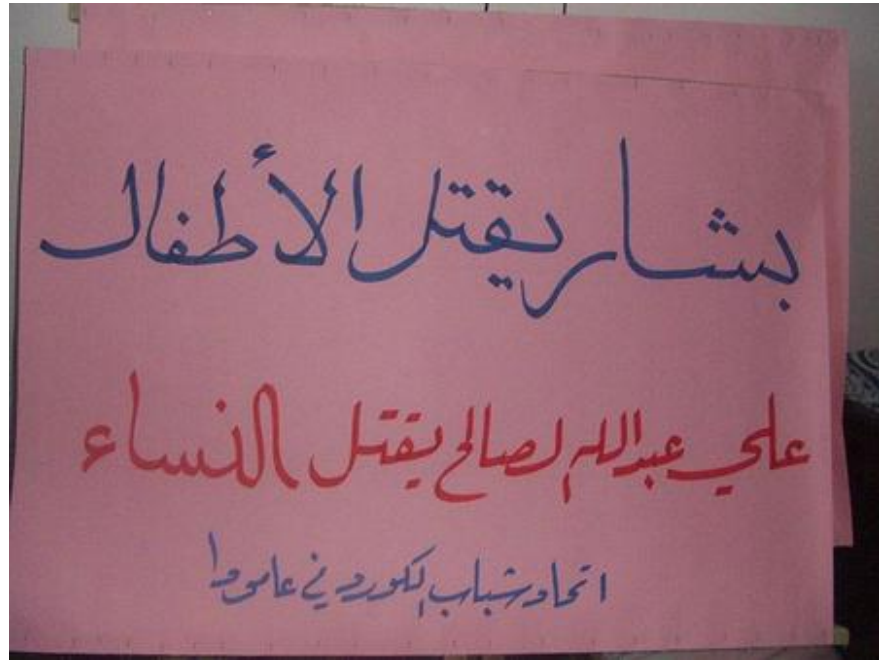 بشار يقتل الأطفال
علي عبدالله لصالح يقتل النساء
اتحاد شباب لكورد في عامودا